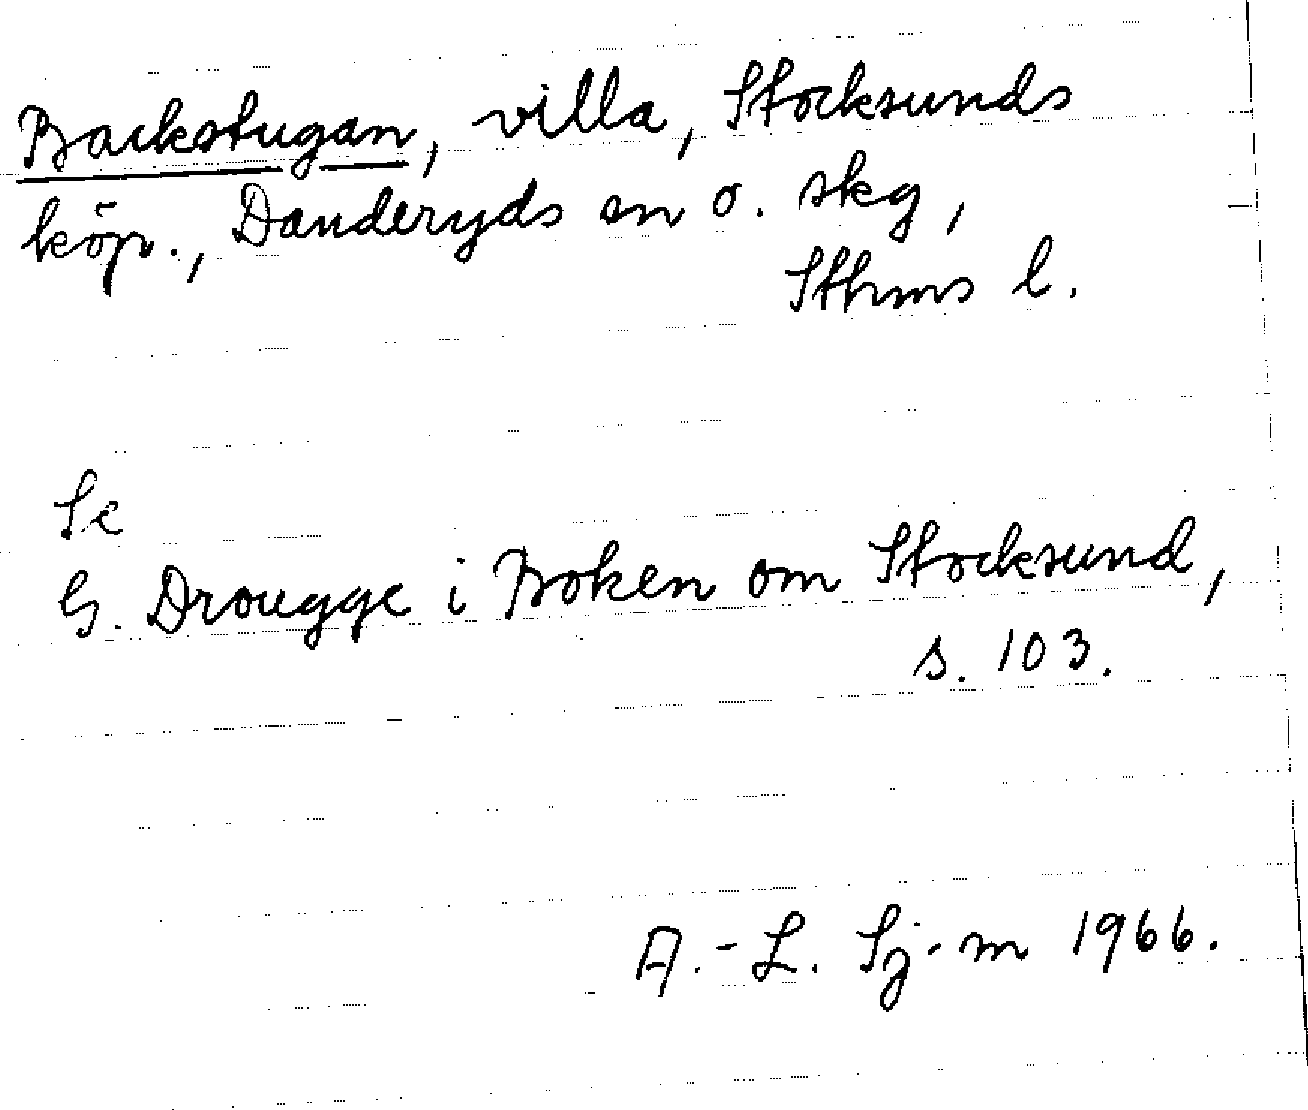 Backstugan, villa, Stocksunds
köp., Danderyds sn o. skg,
Sthms l.
Se
G. Drougge i Boken om Stocksund,
s. 103.
A.-L. Sj-m 1966.